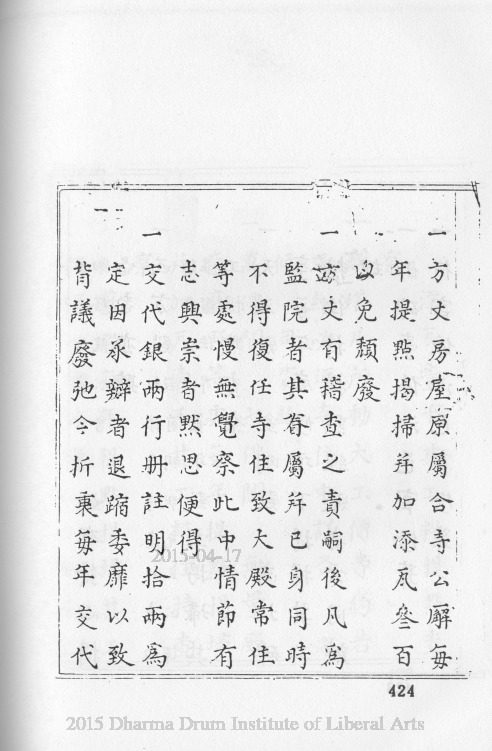 一方丈房屋原屬合寺公廨每
年提㸃揭掃并加添瓦叄百
以免頹廢
一方丈有稽查之責嗣後凡為
監院者其眷屬并已身同時
不得復任寺住致大殿常住
等處慢無覺察此中情節有
志興崇者默思便得
一交代銀兩行册註明拾兩為
定因承辦者退蹜委靡以致
背議廢弛今折衷每年交代
424
2015-04-17
2015 Dharma Drum Institute of Liberal Arts